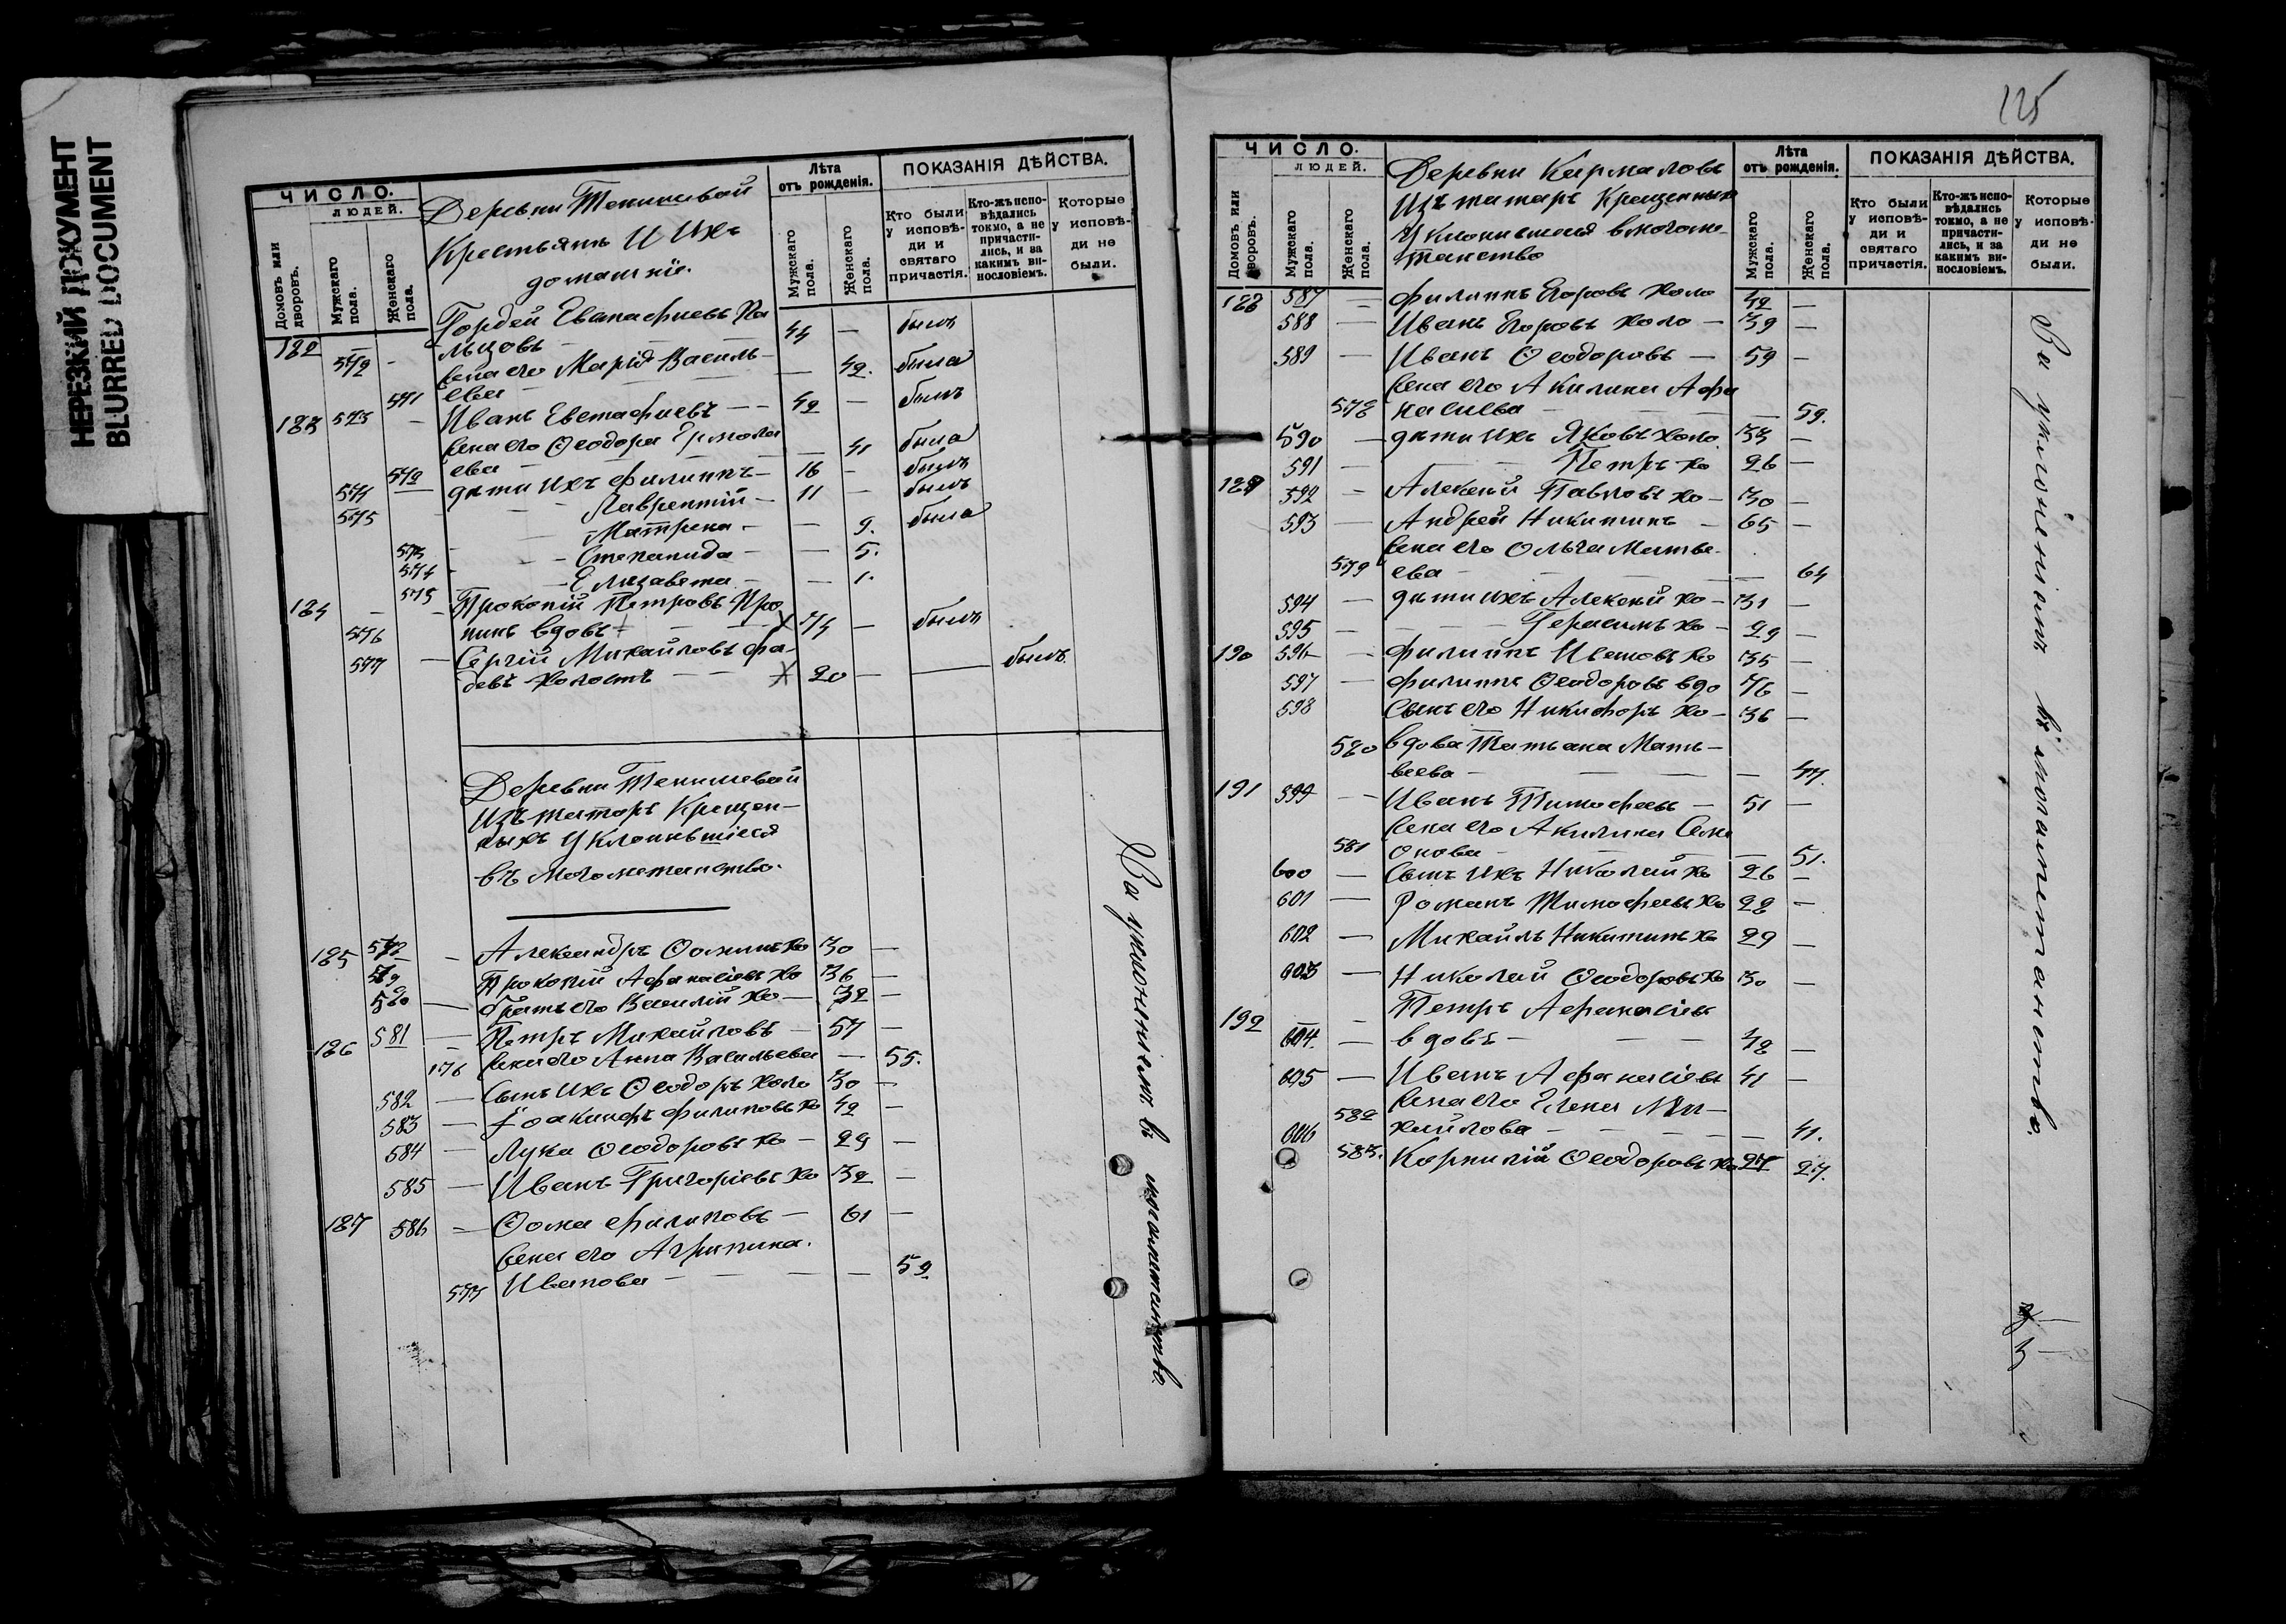 НЕРЕЗКИЙ ДОКУМЕНТ
BLURRED DOCUMENT
ЧИСЛО.
ЛЮДЕЙ.
Домовъ или дворовъ.
Мужскаго пола.
Женскаго пола.
Деревни
Крестьянъ и ихъ
домашнiе.
Лѣта
отъ рожденiя.
Мужскаго пола.
Женскаго пола.
ПОКАЗАНIЯ ДѢЙСТВА.
Кто были у исповѣди и святаго причастiя.
Кто-жъ исповѣдались токмо, а не причастились, и за какимъ винословiемъ.
Которые у исповѣди не были.
182 Гордей Евстафiевъ
572 — льцовъ — 44 — былъ
жена его Марiя Василь-
571 ева — 42. была
183 573 — Иванъ Евстафiевъ — 42 — былъ
жена его Ѳеодора Ермола
572 ева — 41 была
574 дѣти ихъ Филиппъ — 16 — былъ
575 Лаврентiй — 11 — былъ
Матрена — 9. была
573 — Степанида — 5.
574 — Елизавета — 1.
575
184 — Прокопiй Петровъ Про
576 нинъ вдовъ 74 — былъ
577 — Сергiй Михайловъ Фа-
девъ холостъ — 20 — былъ
Деревни
Изъ татаръ Крещен-
ныхъ Уклонившiеся
въ Могометанство.
185 578 — Александръ Ѳоминъ хо 30 —
579 Прокопiй Афанасiевъ хо 36 —
580 — братъ его Василiй хо — 32 —
186 581 — Петръ Михайловъ — 57 —
176 жена его Анна Васильева — 55.
582 — Сынъ ихъ Ѳеодоръ холо 30 —
583 — Iоакинфъ Филиповъ хо 42 —
584 — Лука Ѳеодоровъ хо — 29 —
585 — Иванъ Григорiевъ хо 32 —
187 586 — Ѳома Филиповъ — 61 —
жена его Агрипина.
577 Иванова — — 59
За уклоненiемъ въ могометанство.
125
ЧИСЛО.
ЛЮДЕЙ.
Домовъ или дворовъ.
Мужскаго пола.
Женскаго пола.
Деревни Кирмаловъ
Изъ татаръ Крещенныхъ
Уклонившiеся в могоме
танство
Лѣта
отъ рожденiя.
Мужскаго пола.
Женскаго пола.
ПОКАЗАНIЯ ДѢЙСТВА.
Кто были у исповѣди и святаго причастiя.
Кто-жъ исповѣдались токмо, а не причастились, и за какимъ винословiемъ.
Которые у исповѣди не были.
188 587 — Филиппъ Егоровъ холо 42 —
588 — Иванъ Егоровъ холо — 39 —
589 — Иванъ Ѳеодоровъ — 59 —
жена его Акилина Афа
578 насьева — — 59.
590 — дѣти ихъ Яковъ холо 33 —
591 — Петръ хо 26 —
189 592 — Алексей Павловъ хо — 30 —
593 — Андрей Никитинъ — 65 —
жена его Ольга Матве-
579 ева — — 64
594 — дѣти ихъ Алексей хо — 31 —
595 — Герасимъ хо — 29 —
190 596 — Филиппъ Ивановъ хо 35 —
597 — Филиппъ Ѳеодоровъ вдо 76 —
598 Сынъ его Никифоръ хо — 36 —
580 вдова Татьяна Мать-
веева — — 47.
191 599 — Иванъ Тимофеевъ — 51 —
жена его Акилина Семи
581 онова — — 51.
600 — Сынъ ихъ Николай хо 26 —
601 — Романъ Тимофеевъ хо 28 —
602 — Михаилъ Никитинъ хо 29 —
603 — Николай Ѳеодоровъ хо 30 —
192 — Петръ Афанасiевъ
604. — вдовъ — 48 —
605 — Иванъ Афанасiевъ 41 —
582 жена его Елена Ми-
606 хайлова — — 41.
583. Корнилiй Ѳеодоровъ хо 27 27.
За уклоненiемъ въ могометанство.